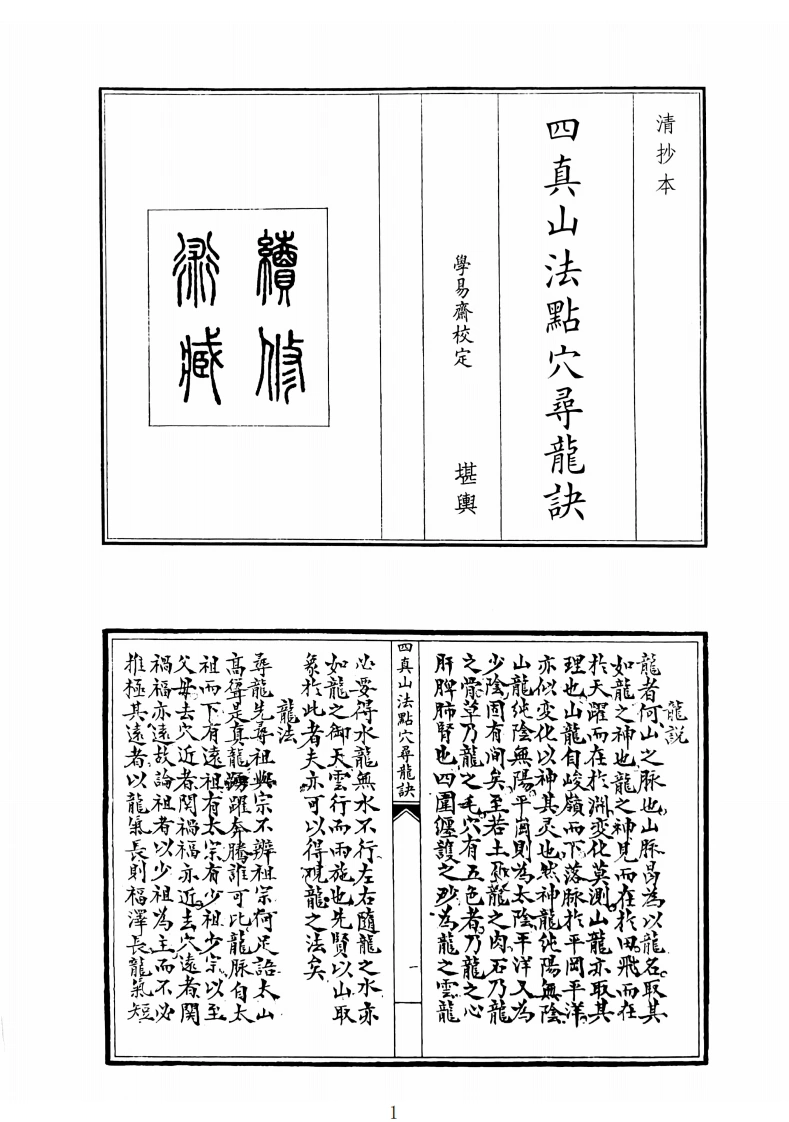 清抄本
四真山法點穴尋龍訣
學易齋校定　堪輿
續修
術藏
龍説
龍者何山之脉也山脉曷為以龍名取其
如龍之神也龍之神見而在於田飛而在
於天躍而在於淵変化莫測山龍亦取其
理也山龍自峻嶺而下落脉於平岡平洋
亦似変化以神其灵也然神龍純陽無陰
山龍純陰無陽平崗則為太陰平洋又為
少陰固有间矣至若土龍之肉石乃龍
之骨草乃龍之毛穴有五色者乃龍之心
肝脾肺腎也四圍纏護之砂為龍之雲龍
四真山法點穴尋龍訣
一
必要得水龍無水不行左右隨龍之水亦
如龍之御天雲行而雨施也先賢以山取
象於此者夫亦可以得覓龍之法矣
龍法
尋龍先尋祖與宗不辨祖宗何足語太山
高聳是真龍踴躍奔騰誰可比龍脉自太
祖而下有遠祖有太宗有少祖少宗以至
父母去穴近者関禍福亦近去穴遠者関
禍福亦遠故論祖者以少祖為主而不必
推極其遠者以龍氣長則福澤長龍氣短
1